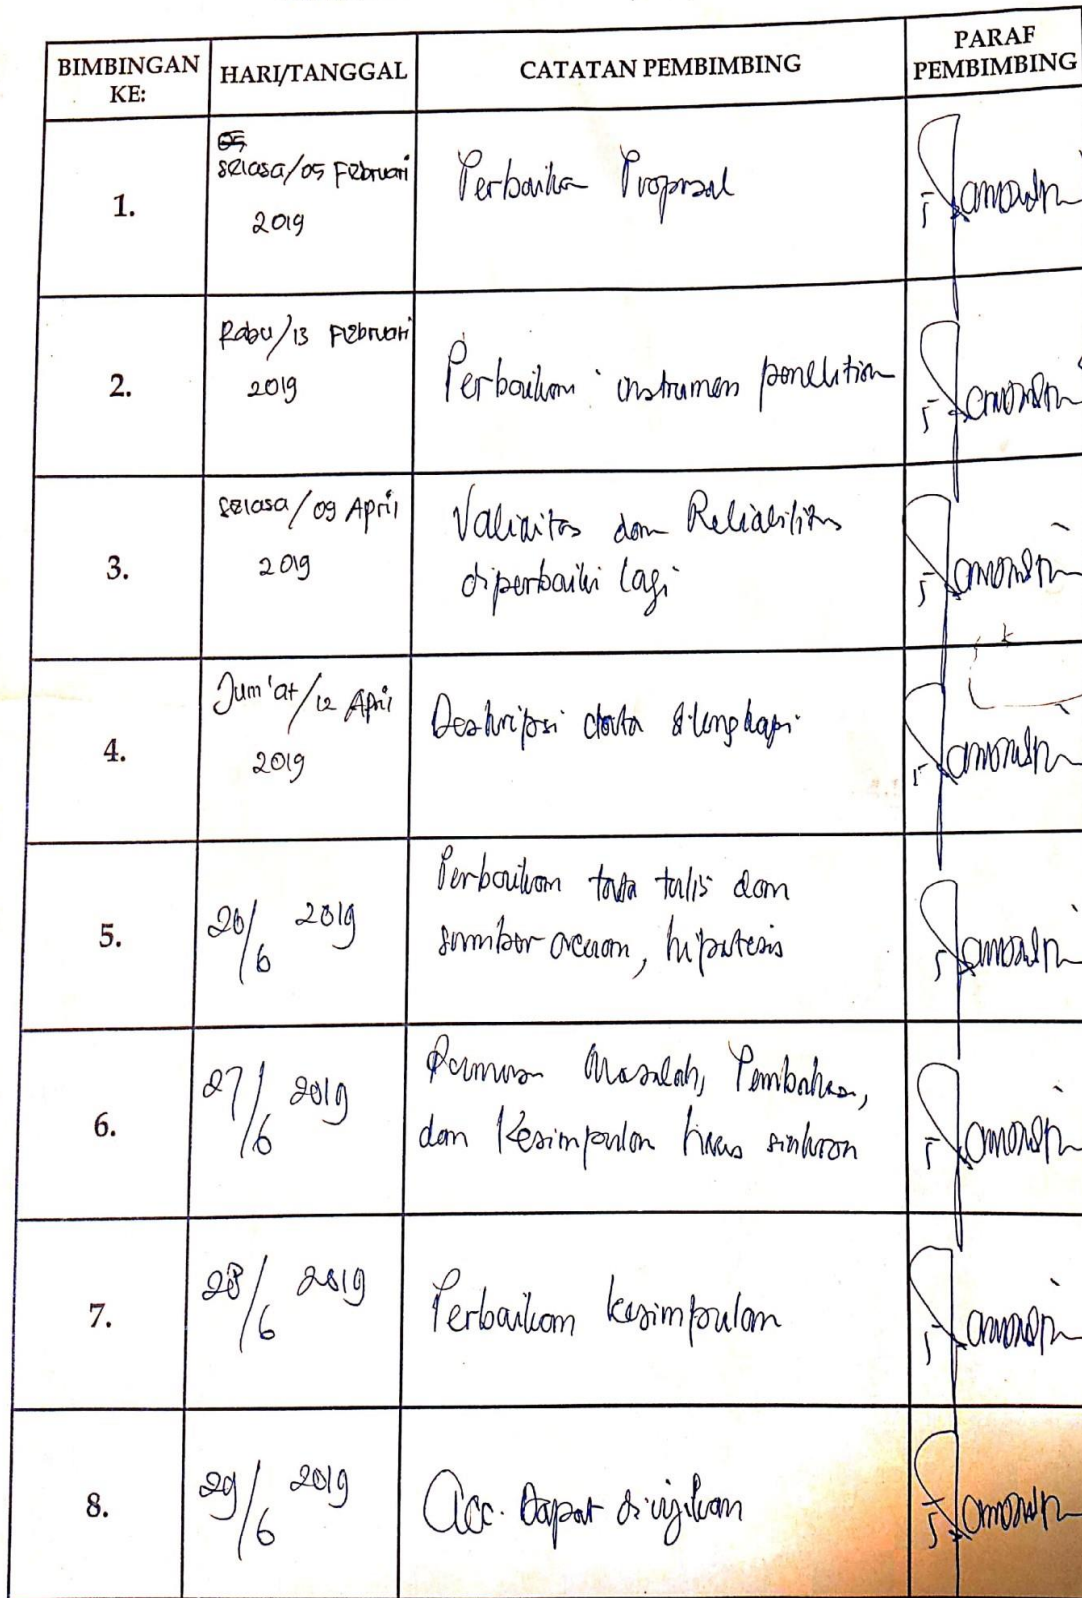 BIMBINGAN KE:
HARI/TANGGAL
CATATAN PEMBIMBING
PARAF PEMBIMBING
1.
Selasa/05 Februari
2019
Perbaikan Proposal
2.
Rabu/13 Februari
2019
Perbaikan instrumen penelitian
3.
Selasa/09 April
2019
Validitas dan Reliabilitas
diperbaiki lagi
4.
Jum'at/12 April
2019
Deskripsi data dilengkapi
5.
26/6 2019
Perbaikan tata tulis dan
sumber acuan, hipotesis
6.
27/6 2019
Rumusan Masalah, Pembahasan,
dan Kesimpulan harus sinkron
7.
28/6 2019
Perbaikan kesimpulan
8.
29/6 2019
Acc. Dapat diujikan